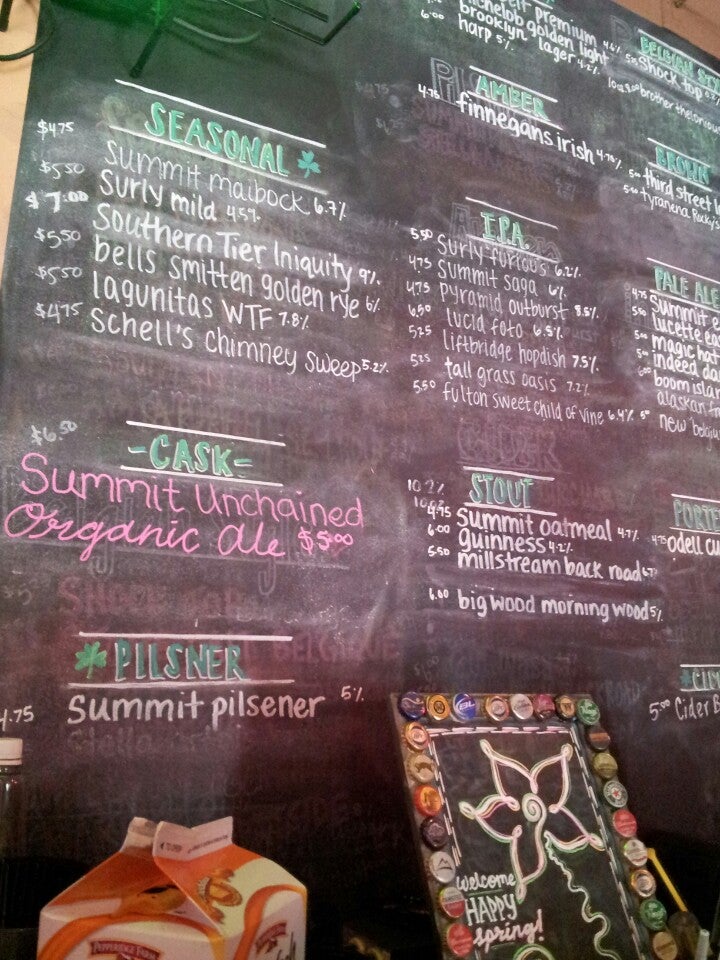 premium 4.6%
michelob golden light
6.00 brooklyn lager 4.2%
harp 5%
SEASONAL
$4.75 Summit maibock 6.7%
$5.50 Surly mild 4.5%
$7.00 Southern Tier Iniquity 9%
$5.50 bells smitten golden rye 6%
$5.50 lagunitas WTF 7.8%
$4.75 Schell's chimney sweep 5.2%
$6.50
-CASK-
Summit Unchained
Organic ale $5.00
PILSNER
4.75 Summit pilsener 5%
AMBER
4.75 finnegans irish 4.70%
I.P.A.
5.50 Surly furious 6.2%
4.75 Summit saga 6%
4.75 pyramid outburst 8.5%
6.50 lucid foto 6.5%
5.25 liftbridge hopdish 7.5%
5.25 tall grass oasis 7.2%
5.50 fulton sweet child of vine 6.4%
STOUT
4.75 Summit oatmeal 4.7%
6.00 guinness 4.2%
5.50 millstream back road
6.00 big wood morning wood 5%
BELGIAN
Shock top
BROWN
5.00 third street
5.50 tyranena Rocky's
PALE ALE
4.75 Summit
5.50 lucette
5.00 magic hat
5.00 indeed
6.00 boom island
alaskan
5.00 new belgium
4.75 odell
5.00 Cider
welcome
HAPPY
spring!
PEPPERIDGE FARM